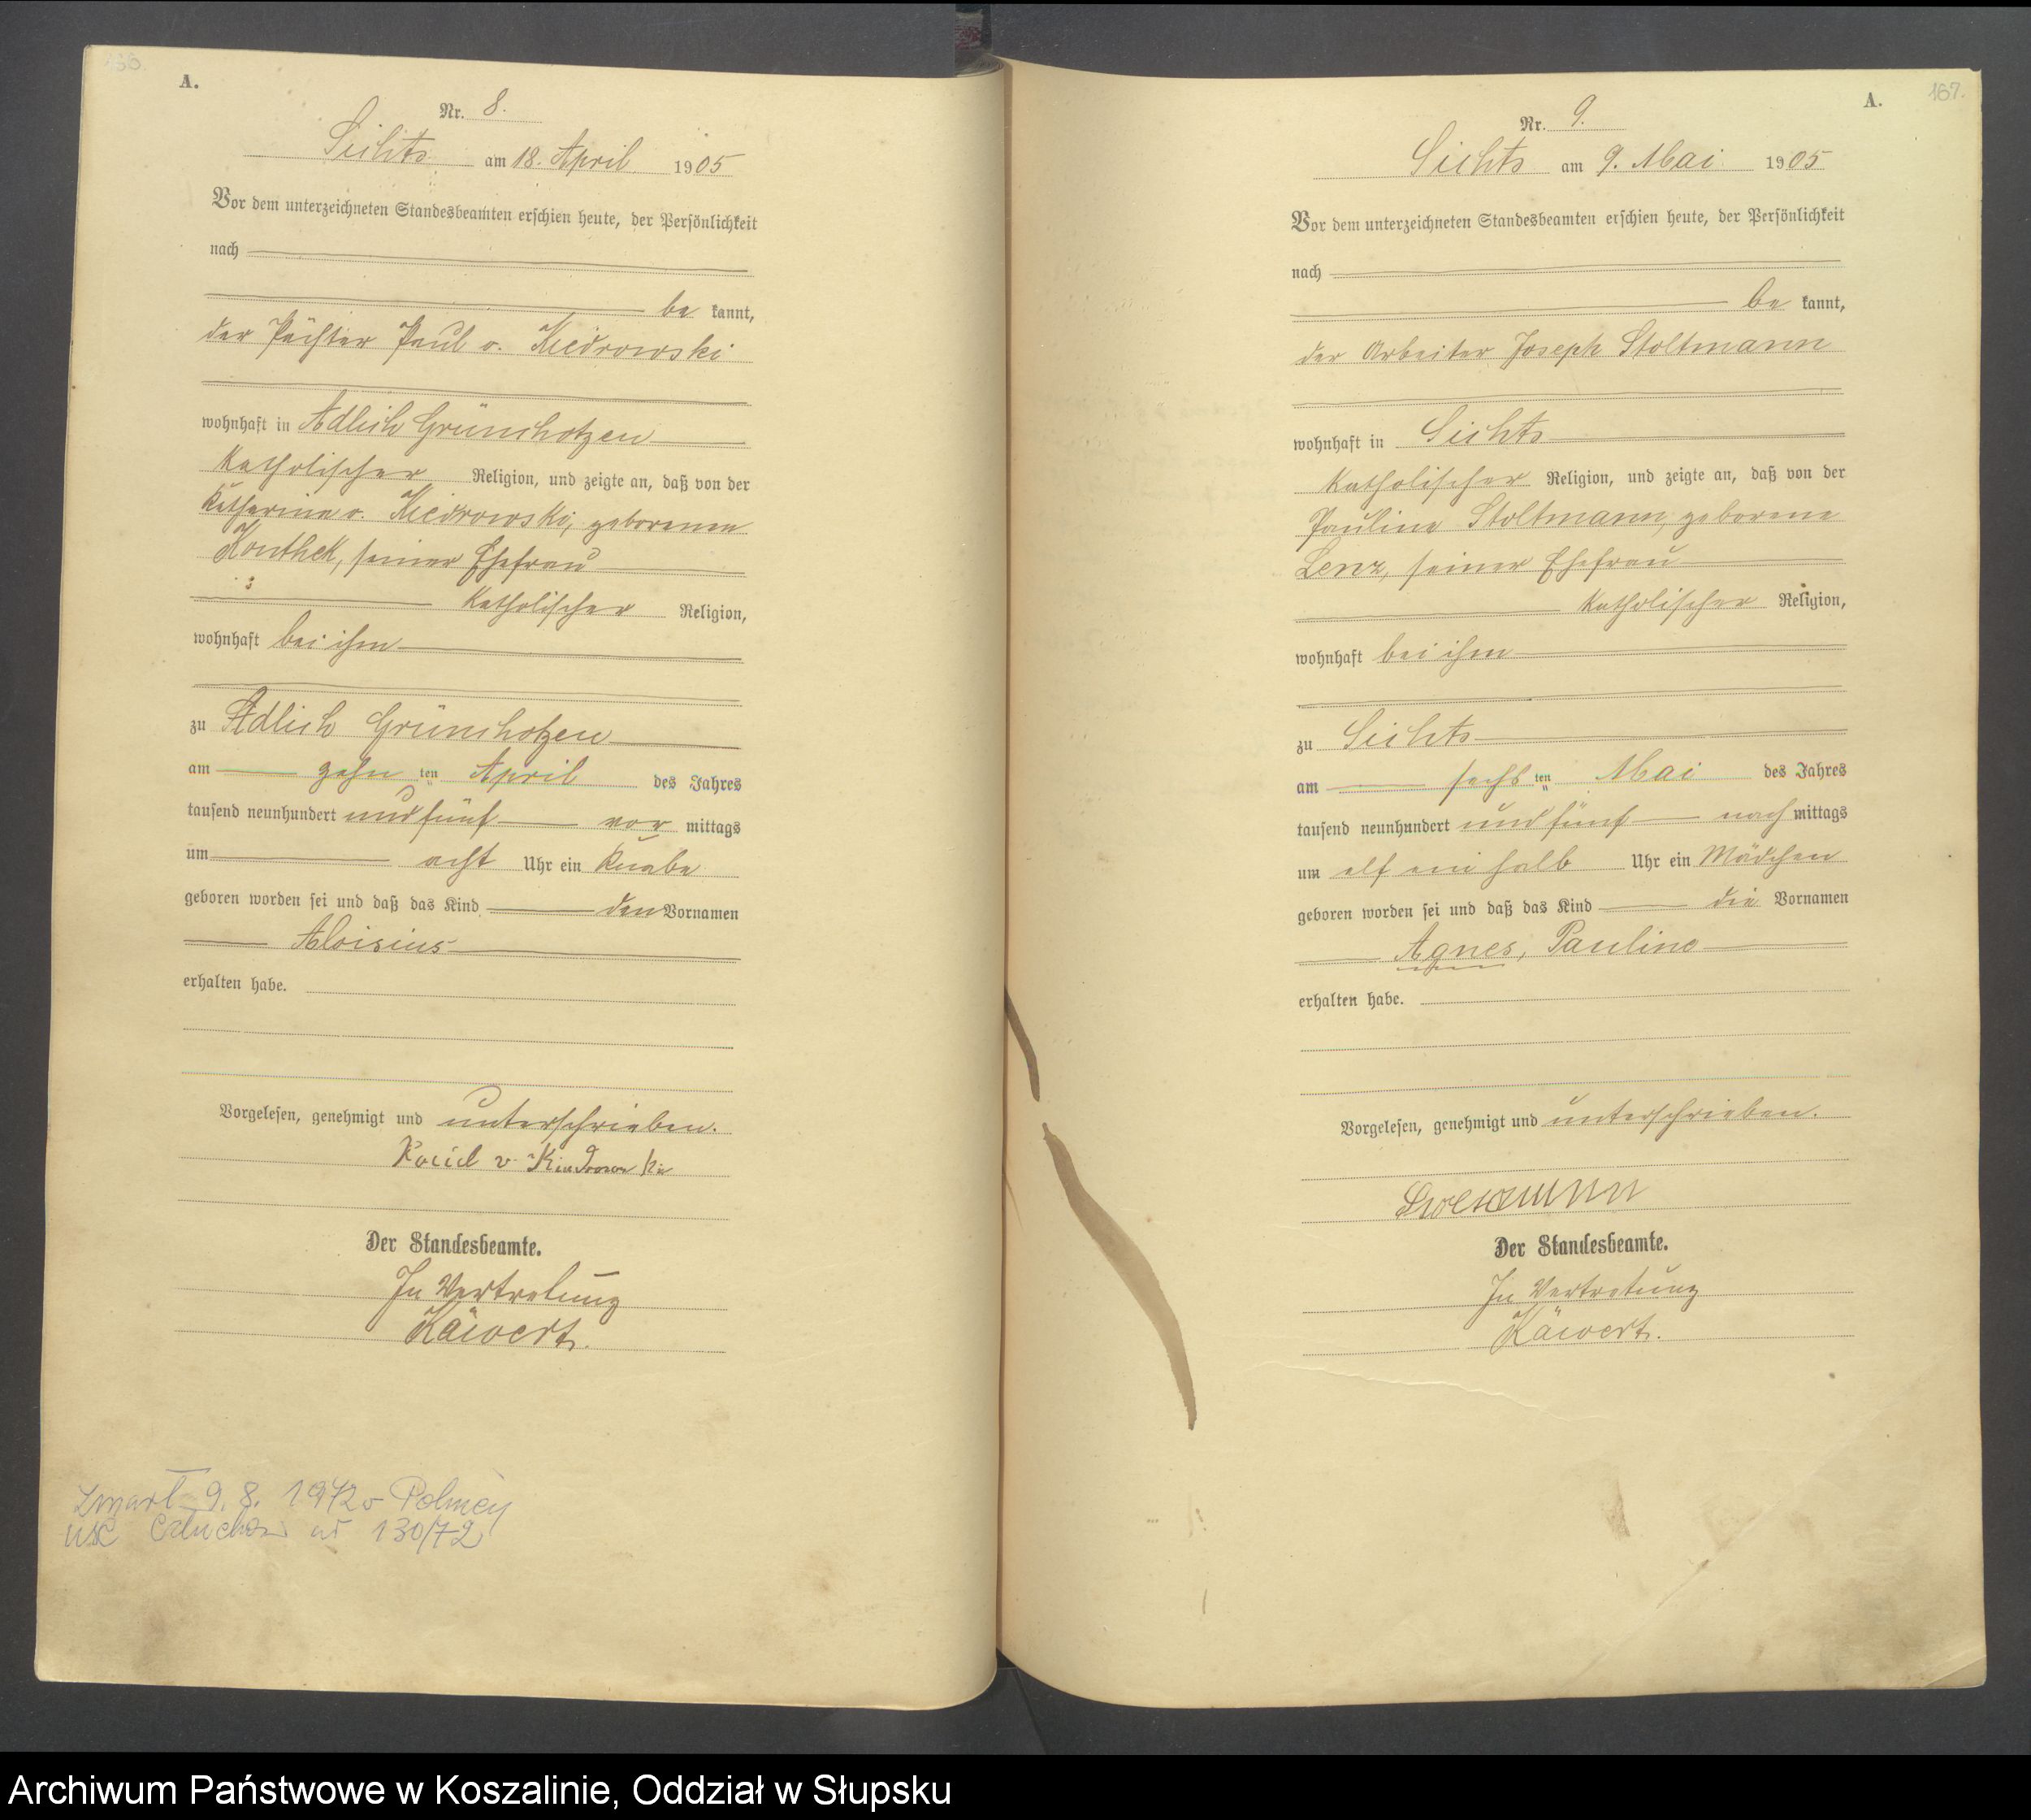 166.
A.
Nr. 8.
Sichts am 18. April 1905
Vor dem unterzeichneten Standesbeamten erschien heute, der Persönlichkeit
nach
be kannt,
der Pächter Paul v. Kiedrowski
wohnhaft in Adlich Grünchotzen
katholischer Religion, und zeigte an, daß von der
Katharina v. Kiedrowski, geborenen
seiner Ehefrau
katholischer Religion,
wohnhaft bei ihm
zu Adlich Grünchotzen
am zehn ten April des Jahres
tausend neunhundert und fünf vor mittags
um acht Uhr ein Knabe
geboren worden sei und daß das Kind den Vornamen
Aloisius
erhalten habe.
Vorgelesen, genehmigt und unterschrieben.
Paul v. Kiedrowski
Der Standesbeamte.
In Vertretung
Käwert.
zmarł 9. 8. 1972 w Polnicy
USC Człuchów nr 130/72
167.
A.
Nr. 9.
Sichts am 9. Mai 1905
Vor dem unterzeichneten Standesbeamten erschien heute, der Persönlichkeit
nach
be kannt,
der Arbeiter Joseph Stoltmann
wohnhaft in Sichts
katholischer Religion, und zeigte an, daß von der
Pauline Stoltmann, geborene
Lenz, seiner Ehefrau
katholischer Religion,
wohnhaft bei ihm
zu Sichts
am sechs ten Mai des Jahres
tausend neunhundert und fünf nach mittags
um elf ein halb Uhr ein Mädchen
geboren worden sei und daß das Kind die Vornamen
Agnes, Pauline
erhalten habe.
Vorgelesen, genehmigt und unterschrieben.
Stoltmann
Der Standesbeamte.
In Vertretung
Käwert.
Archiwum Państwowe w Koszalinie, Oddział w Słupsku